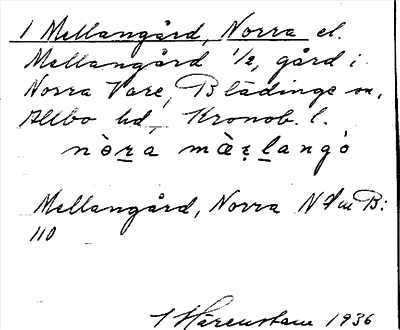 1 Mellangård, Norra el.
Mellangård 1/2, gård i
Norra Vare, Blädinge sn,
Allbo hd, Kronob. l.
nòra mæ̀langò
Mellangård, Norra N B:
110
Härenstam 1936